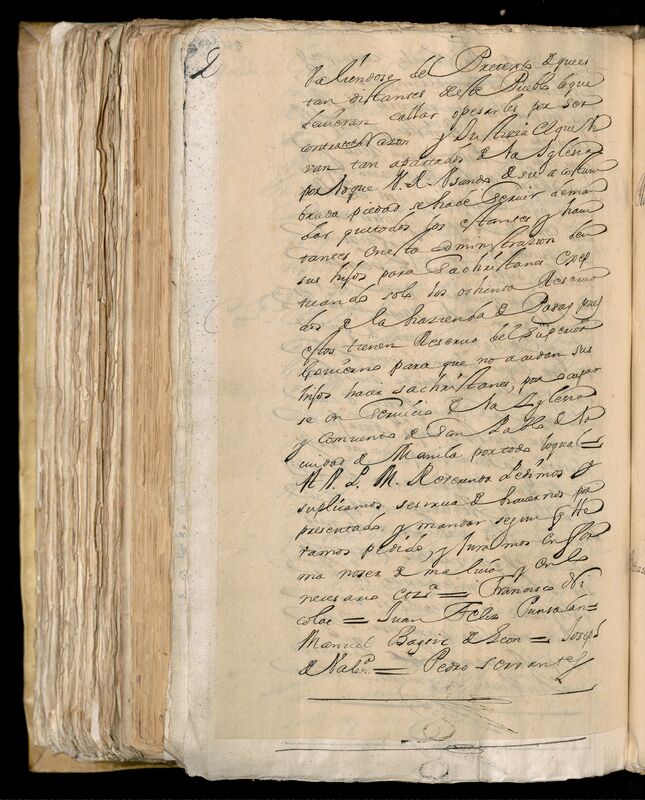 2
Valiéndose del Pretexto de que es
tan distantes deste Pueblo loque
devieran callar oponerles por ser
contra toda Razon y Justizia el que Vi
van tan apartados de Na Iglesia
por loque V. R. Vsando de su acostum
brada piedad se ha de Servir de man
dar que todos los estantes y havi
tantes en esta Administrazion den
sus hijos para Sachristanes Excep
tuando solo los ochenta Reserva
dos de la hazienda de Pasay pues
estos tienen Reserva del Superior
Govierno para que no acudan sus
hijos hacer sachristanes, por ocupar
se en Servicio de Na Iglesia
y Convento de San Pablo de Na
ciudad de Manila por todo loqual =
A V. P. M. Reverenda Pedimos y
suplicamos se sirva de havernos por
presentado y mandar segun q lle
vamos pedido, y Juramos en for
ma no ser de malicia y en lo
necesario Etzª = Francisco Ni
colas = Juan Feliz Punsalan =
Manuel Bagsic de Leon = Joseph
de Valª = Pedro Servantes